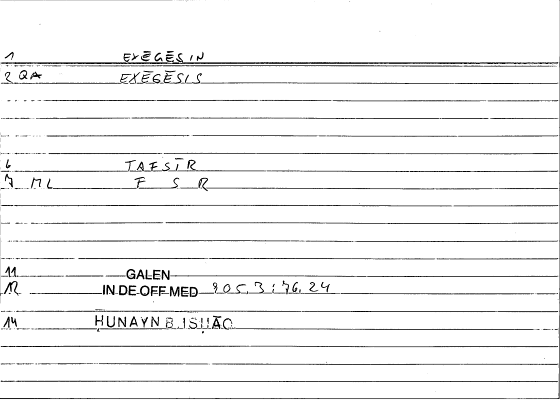 1 EXĒGĒSIN
2 QA EXĒGĒSIS
6 TAFSĪR
7 ML F S R
11 GALEN
12 IN DE OFF MED 905,3:76.24
14 ḤUNAYN B.ISḤĀQ